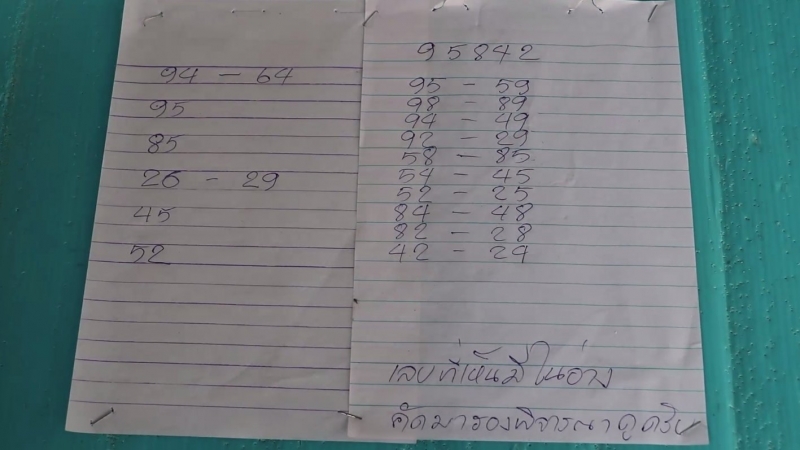 94 - 64
95
85
26 - 29
45
52
95842
95 - 59
98 - 89
94 - 49
92 - 29
58 - 85
54 - 45
52 - 25
84 - 48
82 - 28
42 - 24
เลขที่เห็นมีในอ่าง
คัดมารองพิจารณาดูครับ